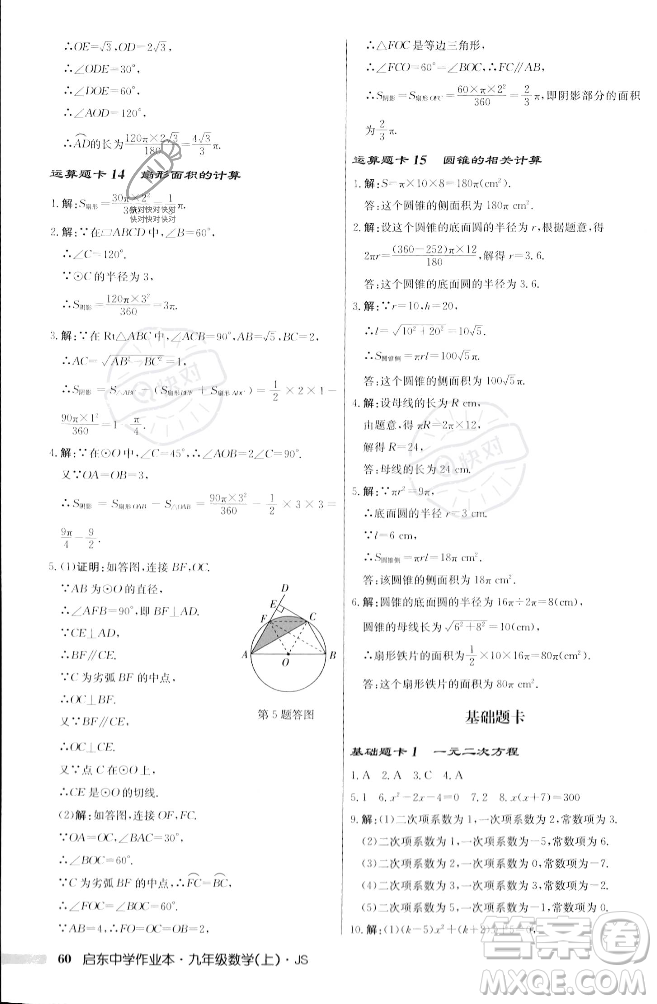 ∴OE=√3,OD=2√3.
∴∠ODE=30°,
∴∠DOE=60°,
∴∠AOD=120°,
∴AD⌒的长为(120π×2√3)/180=(4√3/3)π.
运算题卡 14 扇形面积的计算
1. 解:S扇形=
2. 解:∵在▱ABCD中,∠B=60°,
∴∠C=120°.
∵⊙C的半径为3,
∴S阴影=(120π×3²)/360=3π.
3. 解:∵在Rt△ABC中,∠ACB=90°,BC=2,
∴AC=√(AB²-BC²)=1,
∴S阴影=S△ABC-
(90π×1²)/360=1-π/4.
4. 解:∵∠C=45°,∴∠AOB=2∠C=90°.
又∵OA=OB=3,
∴S阴影=S扇形OAB-S△OAB=(90π×3²)/360-1/2×3×3=
9π/4-9/2.
5. (1)证明:如答图,连接BF,OC.
∵AB为⊙O的直径,
∴∠AFB=90°,即BF⊥AD.
∵CE⊥AD,
∴BF∥CE.
∵C为劣弧BF的中点,
∴OC⊥BF.
又∵BF∥CE,
∴OC⊥CE.
又∵点C在⊙O上,
∴CE是⊙O的切线.
D
F
E
C
A
O
B
第5题答图
(2)解:如答图,连接OF,CF.
∵OA=OC,∠BAC=30°,
∴∠BOC=60°.
∵C为劣弧BF的中点,∴FC⌒=BC⌒,
∴∠FOC=∠BOC=60°.
又∵OF=OC,
∴△FOC是等边三角形,
∴∠FCO=60°=∠BOC,∴CF∥AB,
∴S阴影=S扇形FOC=(60×π×2²)/360=2/3π,即阴影部分的面积
为2/3π.
运算题卡 15 圆锥的相关计算
1. 解:S=π×10×8=180π(cm²).
答:这个圆锥的侧面积为180π cm².
2. 解:设这个圆锥的底面圆的半径为r,根据题意,得
2πr=((360-252)π×12)/180,解得r=3.6.
答:这个圆锥的底面圆的半径为3.6.
3. 解:∵r=10,h=20,
∴l=√(10²+20²)=10√5,
∴S圆锥侧=πrl=100√5π.
答:这个圆锥的侧面积为100√5π.
4. 解:设母线的长为R cm,
由题意,得πR=2π×12,
解得R=24.
答:母线的长为24 cm.
5. 解:∵πr²=9π,
∴底面圆的半径为r=3 cm.
∵l=6 cm,
∴S圆锥侧=πrl=18π cm².
答:该圆锥的侧面积为18π cm².
6. 解:圆锥的底面圆的半径为16π÷2π=8(cm),
圆锥的母线长为√(6²+8²)=10(cm),
∴扇形铁片的面积为1/2×10×16π=80π(cm²).
答:这个扇形铁片的面积为80π cm².
基础题卡
基础题卡 1 一元二次方程
1. A 2. A 3. C 4. A
5. 1 6. x²-2x-4=0 7. 2 8. x(x+7)=300
9. 解:(1)二次项系数为1,一次项系数为
(2)二次项系数为1,一次项系数为-5,常数项为
(3)二次项系数为2,一次项系数为-7,常数项为
(4)二次项系数为1,一次项系数为0,常数项为
(5)二次项系数为1,一次项系数为6,常数项为
10. 解:(1)(k-5)x²+(k+2)x+5=0,
60 启东中学作业本·九年级数学(上)·JS
快对快对快对
快对快对快对
快对
答案圈
MXQE.COM